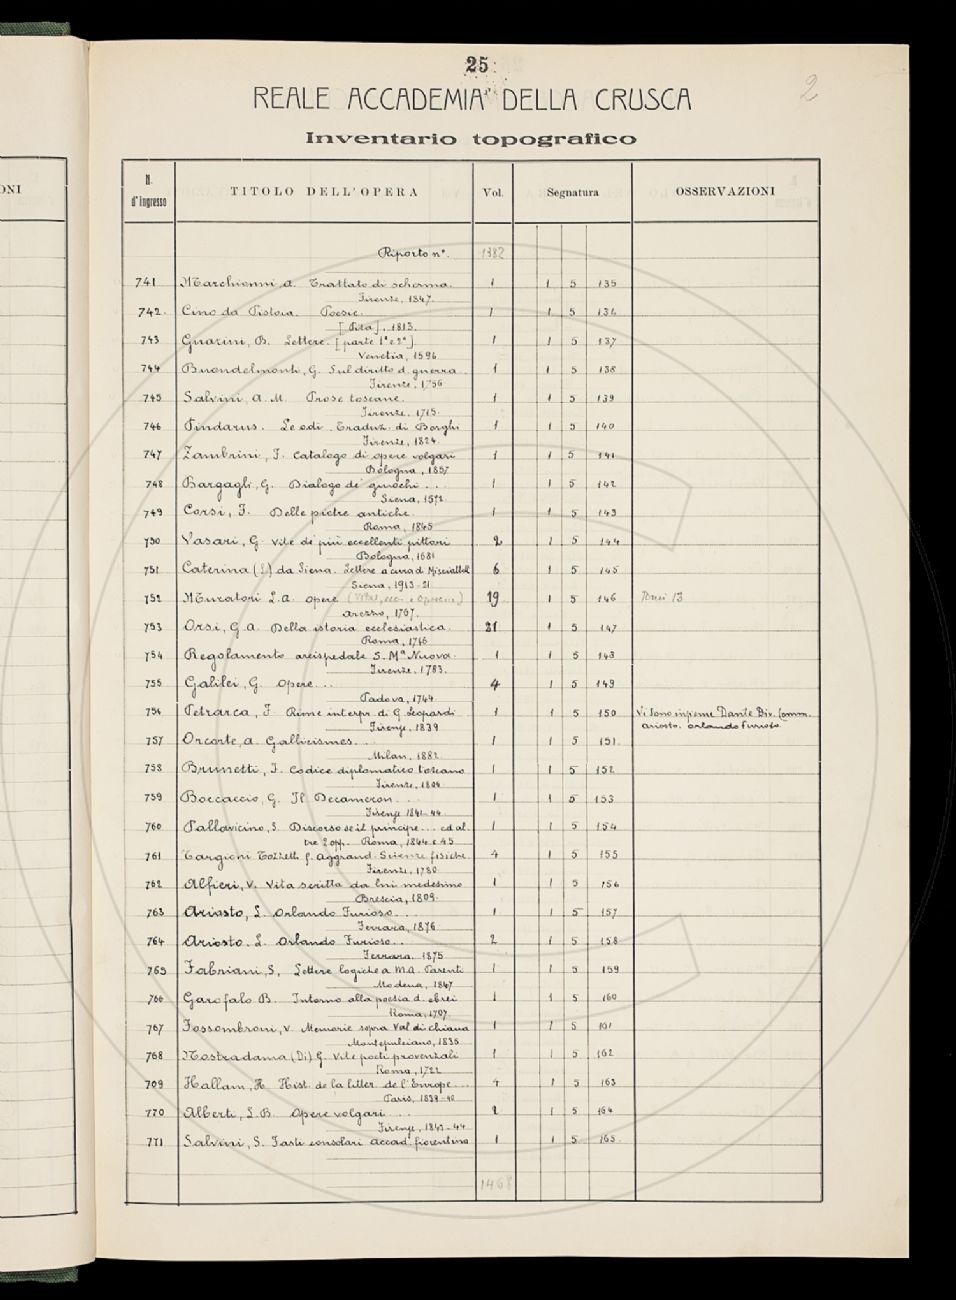 ONI
25
2
REALE ACCADEMIA DELLA CRUSCA
Inventario topografico
N. d'Ingresso TITOLO DELL'OPERA Vol. Segnatura OSSERVAZIONI
Riporto n°. 1382
741 Marchionni, A. Trattato di scherma. 1 1 5 135
Firenze, 1847.
742. Cino da Pistoia. Poesie. 1 1 5 136
[Pisa], 1813.
743 Guarini, B. Lettere. [parte 1ª e 2ª] 1 1 5 137
Venetia, 1596
744 Buondelmonti, G. Sul diritto d. guerra 1 1 5 138
Firenze, 1756
745 Salvini, A. M. Prose toscane. 1 1 5 139
Firenze, 1715.
746 Pindarus. Le odi. Traduz. di Borghi 1 1 5 140
Firenze, 1824.
747 Zambrini, F. Catalogo di opere volgari 1 1 5 141
Bologna, 1857
748 Bargagli, G. Dialogo de' giuochi ... 1 1 5 142
Siena, 1572.
749 Corsi, F. Delle pietre antiche. 1 1 5 143
Roma, 1845
750 Vasari, G. Vite de' più eccellenti pittori 2 1 5 144
Bologna, 1681
751 Caterina (S.) da Siena. Lettere a cura d. Misciattelli 6 1 5 145
Siena, 1913-21
752 Muratori L. A. Opere 19 1 5 146 13
Arezzo, 1767.
753 Orsi, G. A. Della istoria ecclesiastica. 21 1 5 147
Roma, 1746
754 Regolamento arcispedale S. Mª Nuova. 1 1 5 148
Firenze, 1783.
755 Galilei, G. Opere... 4 1 5 149
Padova, 1744
756 Petrarca, F. Rime interpr. di G. Leopardi 1 1 5 150 Vi sono insieme Dante Div. Comm.
Firenze, 1839 Ariosto. Orlando Furioso
757 Orcorte, A. Gallicismes... 1 1 5 151.
Milan, 1882
758 Brunetti, F. Codice diplomatico toscano 1 1 5 152
Firenze, 1804
759 Boccaccio, G. Il Decameron... 1 1 5 153
Firenze 1841-44
760 Pallavicino, S. Discorso se il principe... ed al. 1 1 5 154
tre 2 opp. Roma, 1844 e 45
761 Targioni Tozzetti G. Aggrand. Scienze fisiche 4 1 5 155
Firenze, 1780
762 Alfieri, V. Vita scritta da lui medesimo 1 1 5 156
Brescia, 1809.
763 Ariosto, L. Orlando Furioso... 1 1 5 157
Ferrara, 1876
764 Ariosto. L. Orlando Furioso.. 2 1 5 158
Ferrara. 1875
765 Fabriani, S, Lettere logiche a M.A. Parenti 1 1 5 159
Modena, 1847
766 Garofalo B. Intorno alla poesia d. ebrei 1 1 5 160
Roma, 1707.
767 Fossombroni, V. Memorie sopra Val di chiana 1 1 5 161
Montepulciano, 1835
768 Nostradama (Di) G. Vite poeti provenzali 1 1 5 162
Roma, 1722
769 Hallam, H. Hist. de la litter. de l'Europe... 4 1 5 163
Paris, 1839-40
770 Alberti, L. B. Opere volgari ... 2 1 5 164
Firenze, 1843-44
771 Salvini, S. Fasti consolari accad. fiorentina 1 1 5 165.
1468